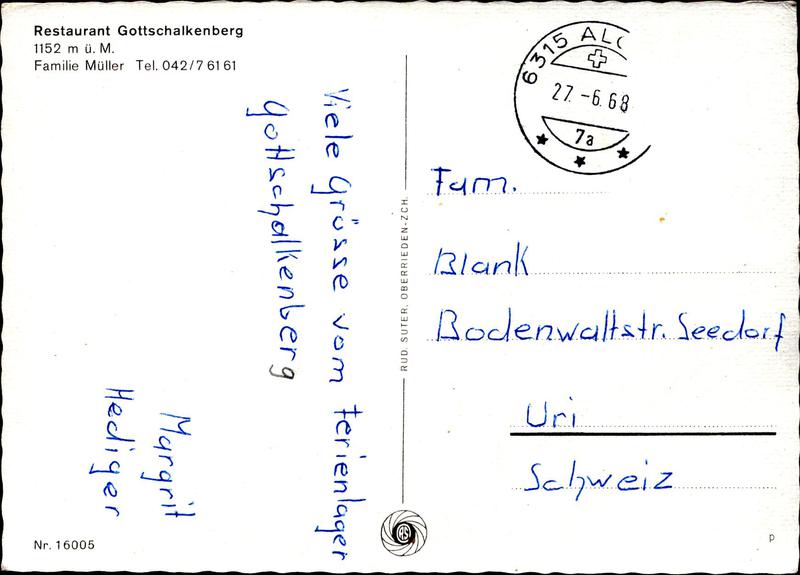 Restaurant Gottschalkenberg
1152 m ü. M.
Familie Müller Tel. 042/7 61 61
Viele Grüsse vom Ferienlager
Gottschalkenberg
Margrit
Hediger
Nr. 16005
RUD. SUTER, OBERRIEDEN-ZCH.
6315
27.-6.68
7a
Fam.
Blank
Bodenwaltstr. Seedorf
Uri
Schweiz
P